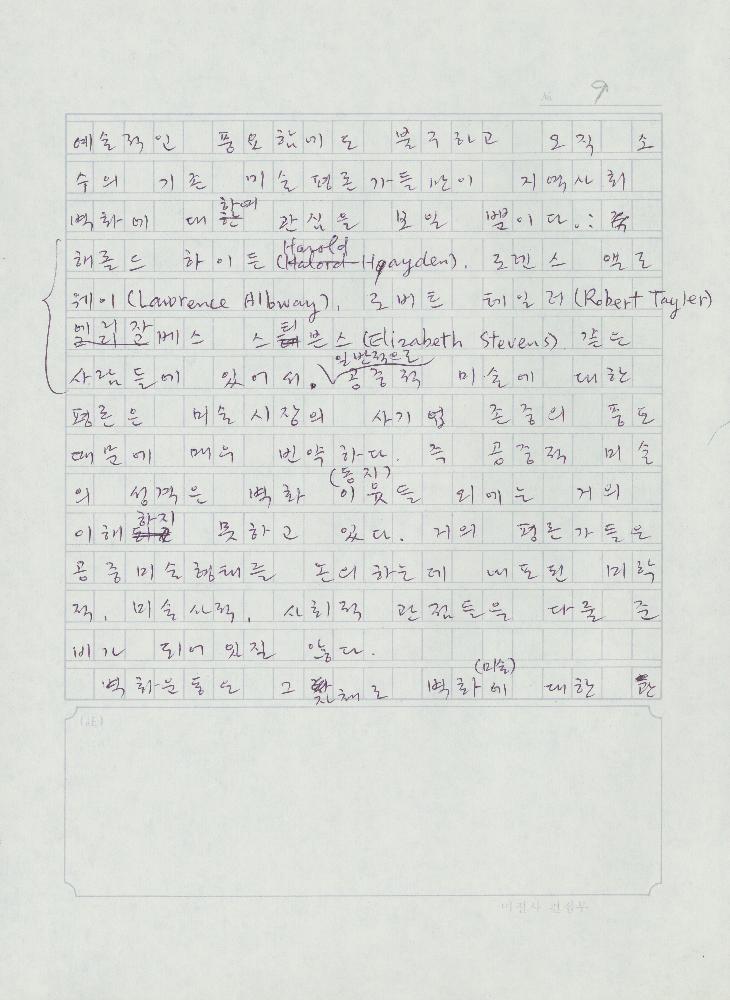 No. 9
예술적인 풍요함에도 불구하고 오직 소
수의 기존 미술평론가들만이 지역사회
벽화에 대하여 관심을 보일 뿐이다.
해롤드 하이든 (Harold Hayden), 로렌스 앨로
웨이 (Lawrence Albway), 로버트 테일러 (Robert Tayler)
엘리자베스 스티븐스 (Elizabeth Stevens) 같은
사람들에 있어서. 일반적으로 공중적 미술에 대한
평론은 미술시장의 사기업 존중의 풍토
때문에 매우 빈약하다. 즉 공중적 미술
의 성격은 벽화 (동지) 이웃들 외에는 거의
이해하지 못하고 있다. 거의 평론가들은
공중미술형태를 논의하는데 내포된 미학
적, 미술사적, 사회적 관점들을 다룰 준
비가 되어 있질 않다.
벽화운동은 그 자체로 벽화(미술)에 대한 관
미진사 편집부